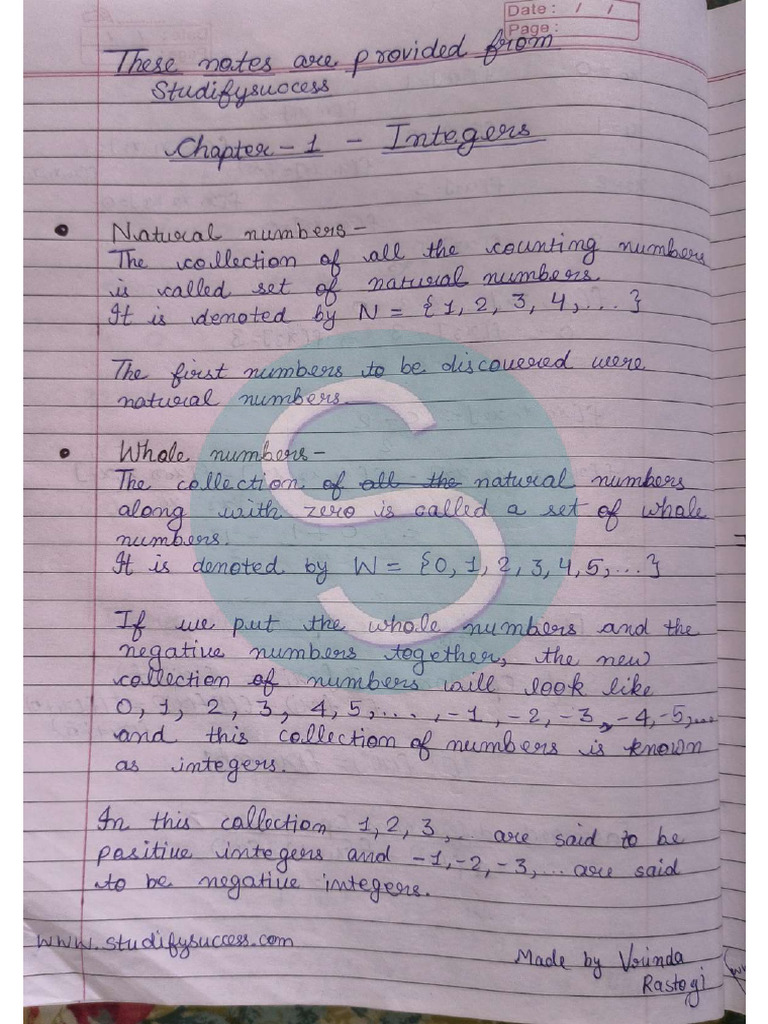 Date: / /
Page:
These notes are provided from
Studifysuccess
Chapter - 1 - Integers
• Natural numbers-
The collection of all the counting numbers
is called set of natural numbers.
It is denoted by N = {1, 2, 3, 4, ...}
The first numbers to be discovered were
natural numbers.
• Whole numbers-
The collection of all the natural numbers
along with zero is called a set of whole
numbers.
It is denoted by W = {0, 1, 2, 3, 4, 5, ...}
If we put the whole numbers and the
negative numbers together, the new
collection of numbers will look like
0, 1, 2, 3, 4, 5, ..., -1, -2, -3, -4, -5, ...
and this collection of numbers is known
as integers.
In this collection 1, 2, 3, ... are said to be
positive integers and -1, -2, -3, ... are said
to be negative integers.
www.studifysuccess.com
Made by Vrinda
Rastogi